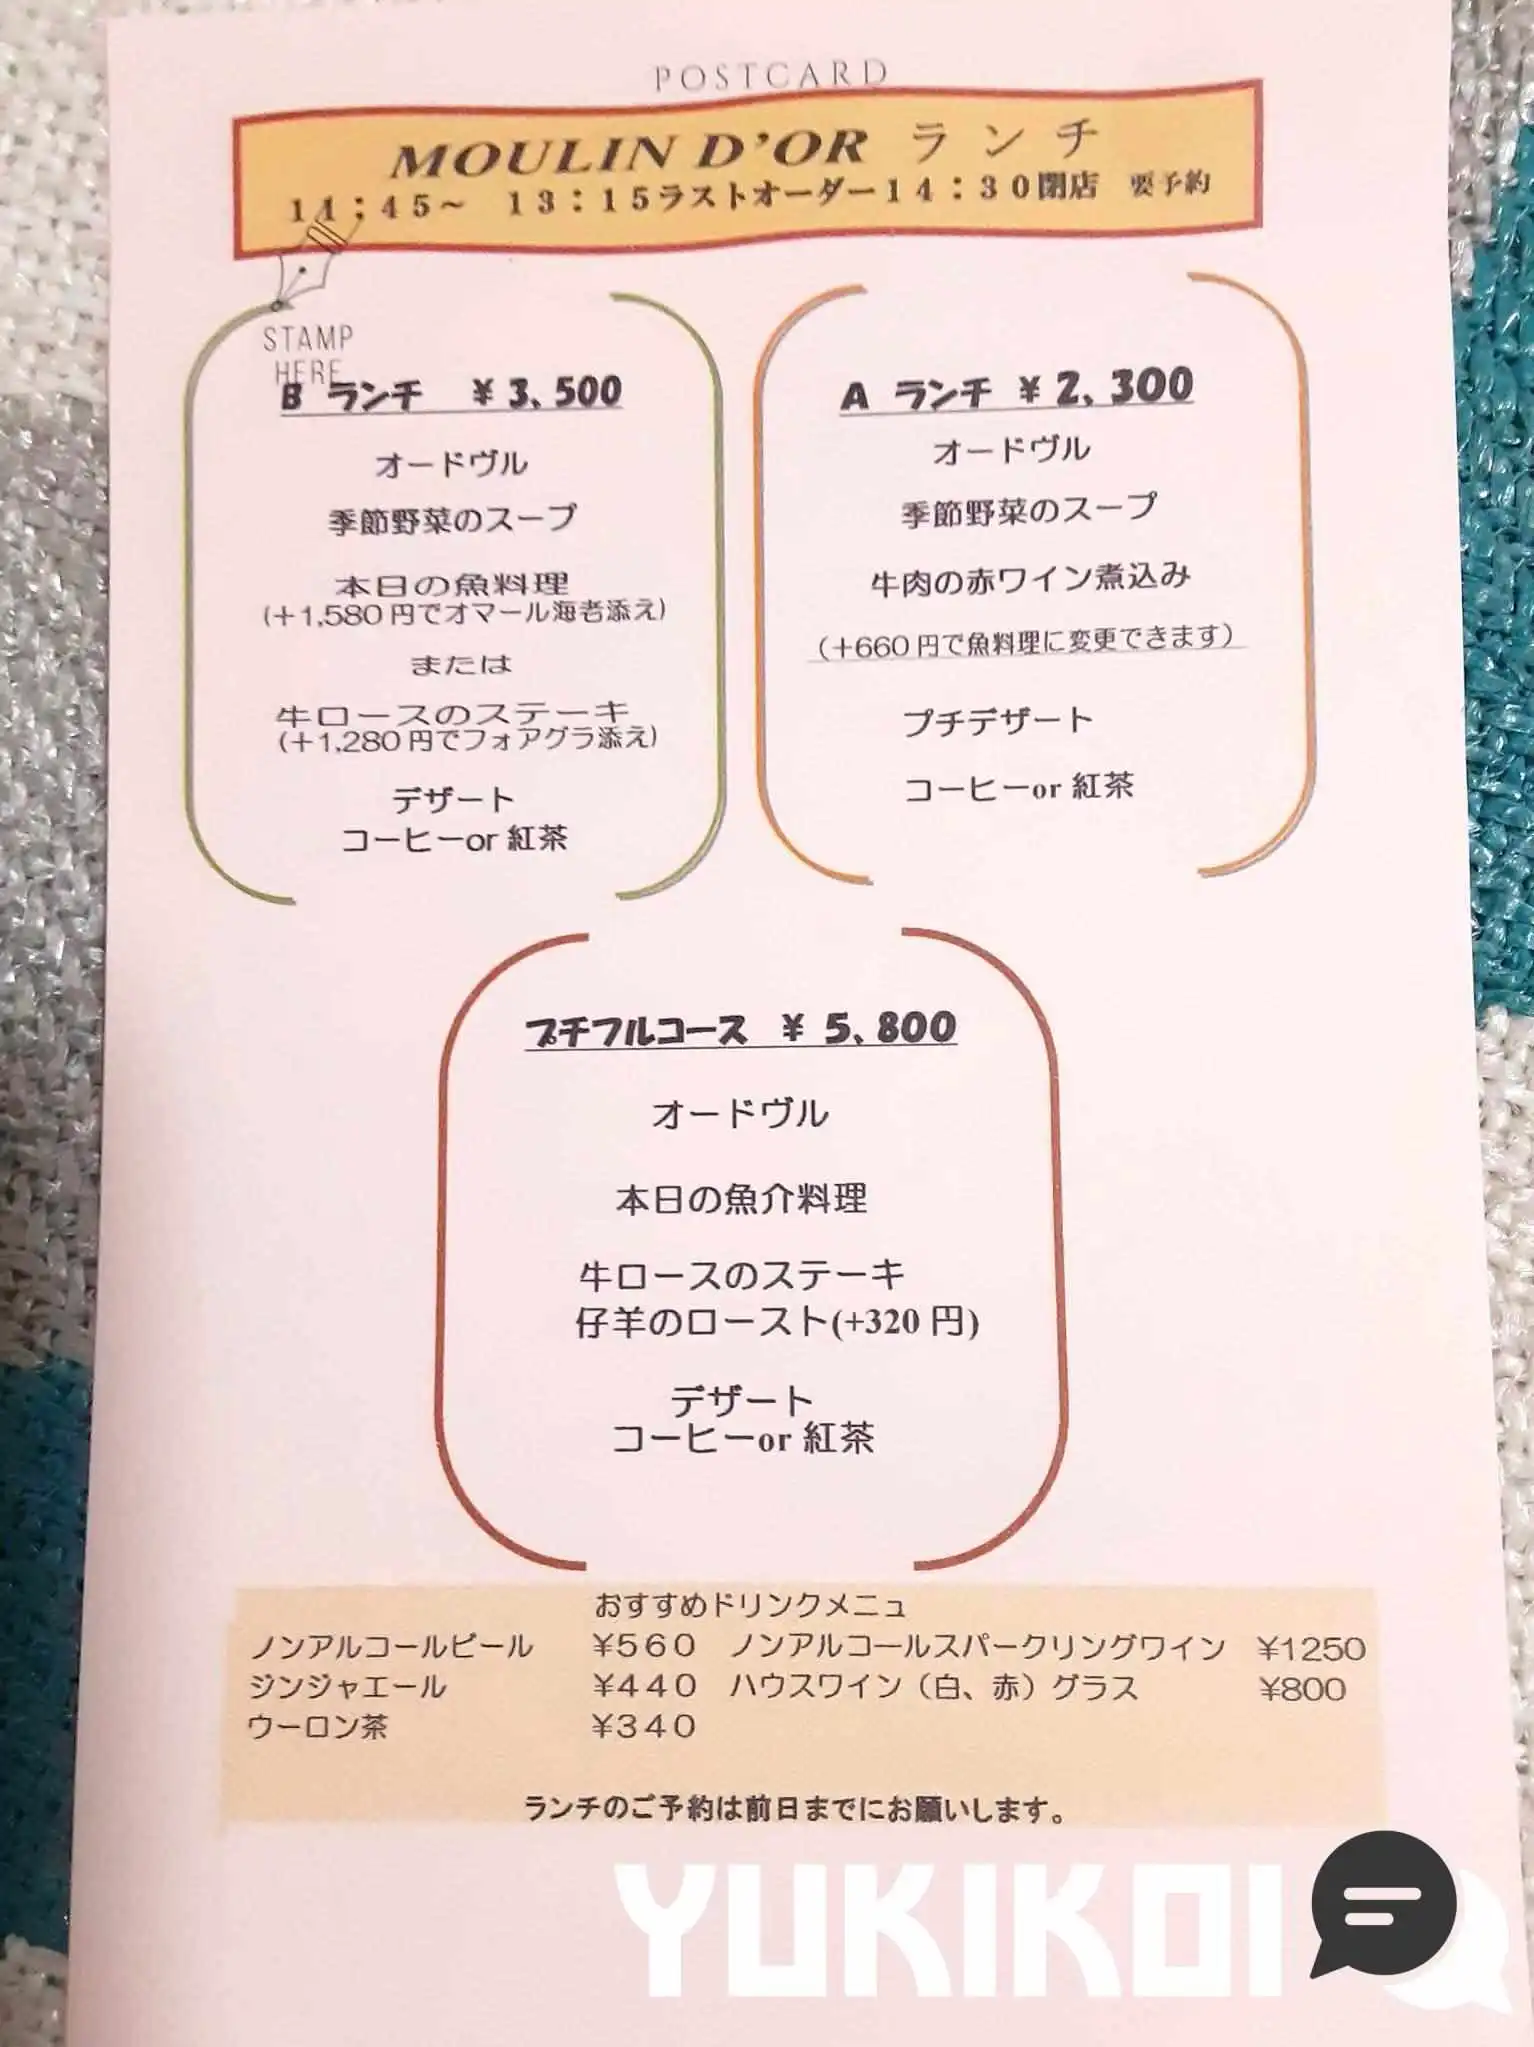 POSTCARD
MOULIN D'OR ランチ
14：45～ 13：15ラストオーダー14：30閉店 要予約
STAMP
HERE
B ランチ ￥3,500
オードヴル
季節野菜のスープ
本日の魚料理
(＋1,580円でオマール海老添え)
または
牛ロースのステーキ
(＋1,280円でフォアグラ添え)
デザート
コーヒーor 紅茶
A ランチ ￥2,300
オードヴル
季節野菜のスープ
牛肉の赤ワイン煮込み
（＋660円で魚料理に変更できます）
プチデザート
コーヒーor 紅茶
プチフルコース ￥5,800
オードヴル
本日の魚介料理
牛ロースのステーキ
仔羊のロースト(+320円)
デザート
コーヒーor 紅茶
おすすめドリンクメニュ
ノンアルコールビール ￥560 ノンアルコールスパークリングワイン ￥1250
ジンジャエール ￥440 ハウスワイン（白、赤）グラス ￥800
ウーロン茶 ￥340
ランチのご予約は前日までにお願いします。
YUKIKOI